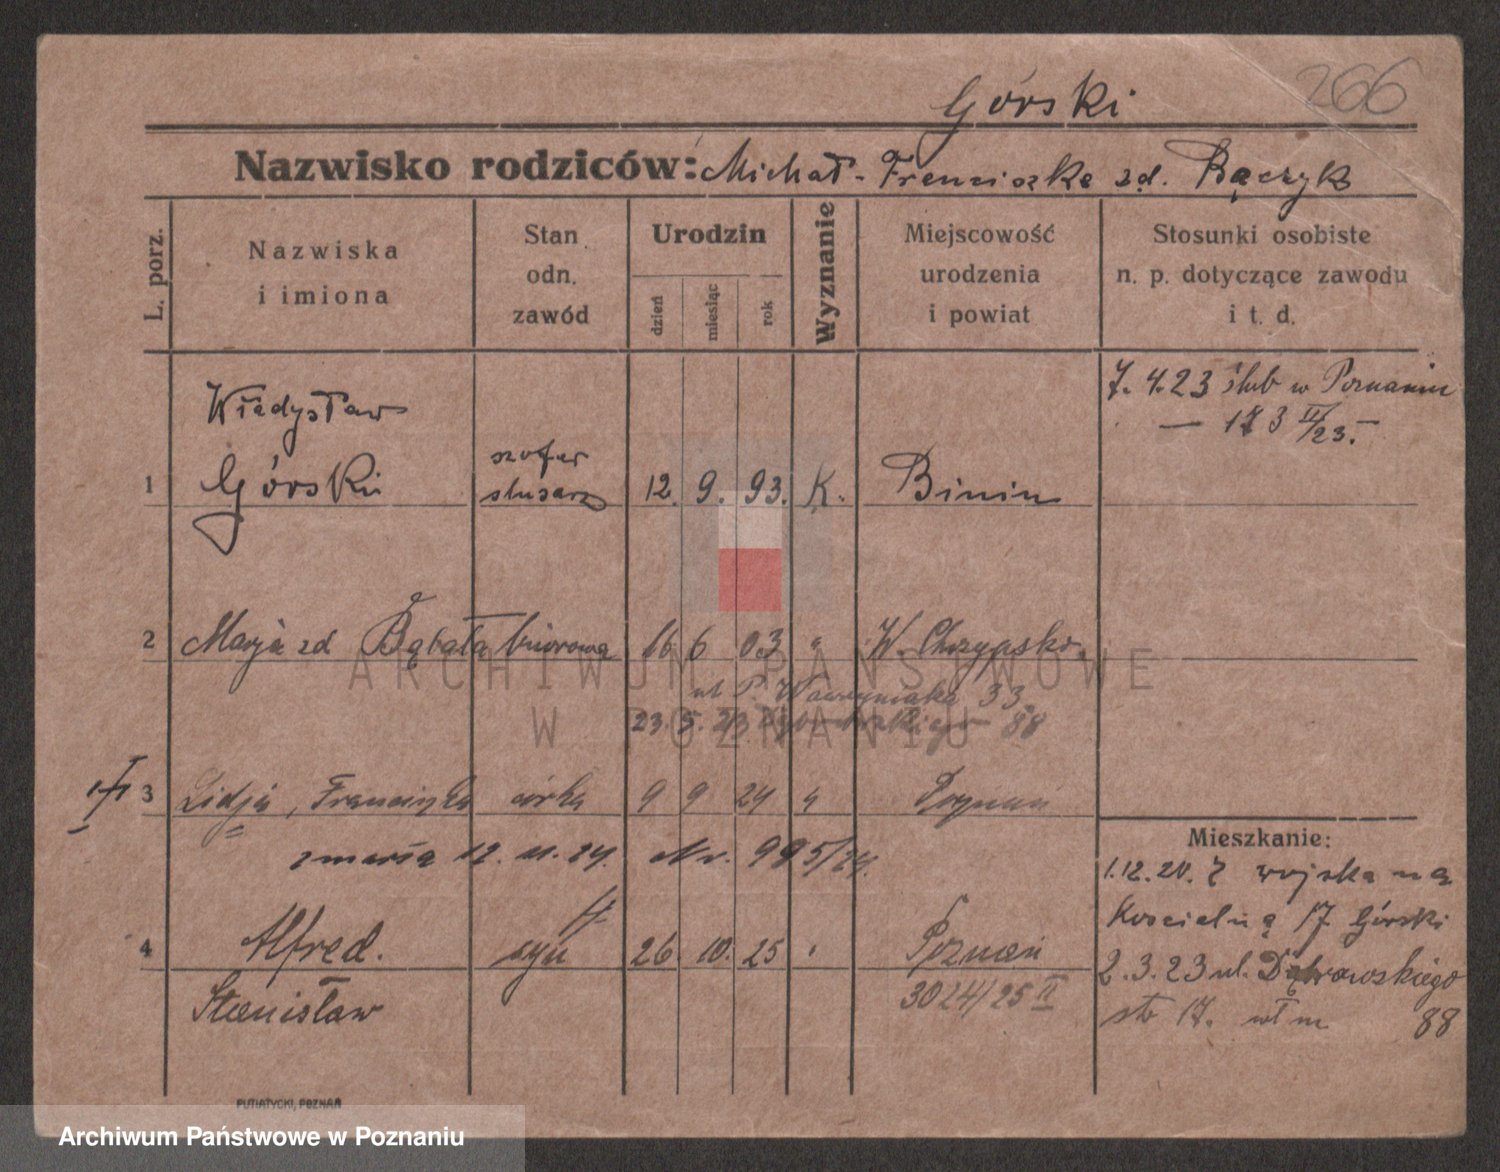 Górski 266
Nazwisko rodziców: Michał - Franciszka zd. Bączyk
L. porz.
Nazwiska
i imiona
Stan
odn.
zawód
Urodzin
dzień
miesiąc
rok
Wyznanie
Miejscowość
urodzenia
i powiat
Stosunki osobiste
n. p. dotyczące zawodu
i t. d.
7. 4. 23 ślub w Poznaniu
— 173 II/23. -
Władysław
szofer
1 Górski ślusarz 12. 9. 93. K. Binin
2 Marja zd Bąbała biurowa 16 6 03 " W. Chrzypsko
ul P. Wawrzyniaka 33
23. 5. 23 Dąbrowskiego 88
3 Lidja, Franciszka córka 9 9 24 " Poznań
zmarła 12. 11. 24. Nr. 995/24.
4 Alfred. syn 26. 10. 25 " Poznań
Stanisław 3024/25 II
Mieszkanie:
1.12.20. Z wojska na
Kościelną 17 Górski
2.3.23 ul. Dąbrowskiego
88
str 17.
PUTIATYCKI, POZNAŃ
ARCHIWUM PAŃSTWOWE
W POZNANIU
Archiwum Państwowe w Poznaniu